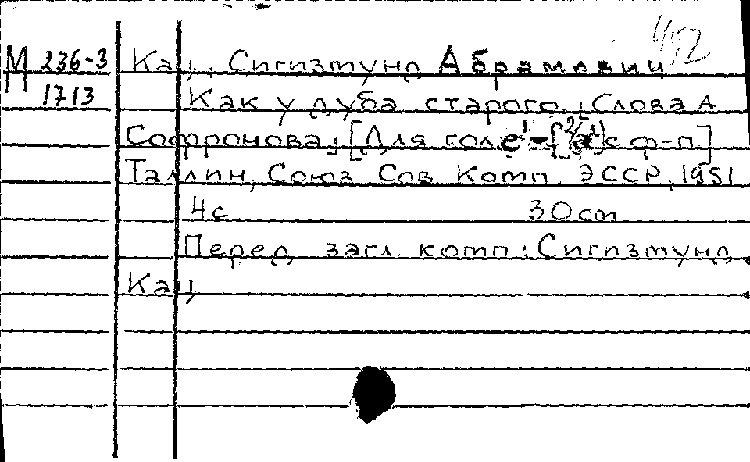 412
М 236-3 Кац, Сигизмунд Абрамович
1713 Как у дуба старого; Слова А
Софронова; [Для гол с ф-п]
Таллин, Союз Сов Комп ЭССР, 1951
4с 30cm
Перед загл комп: Сигизмунд
Кац